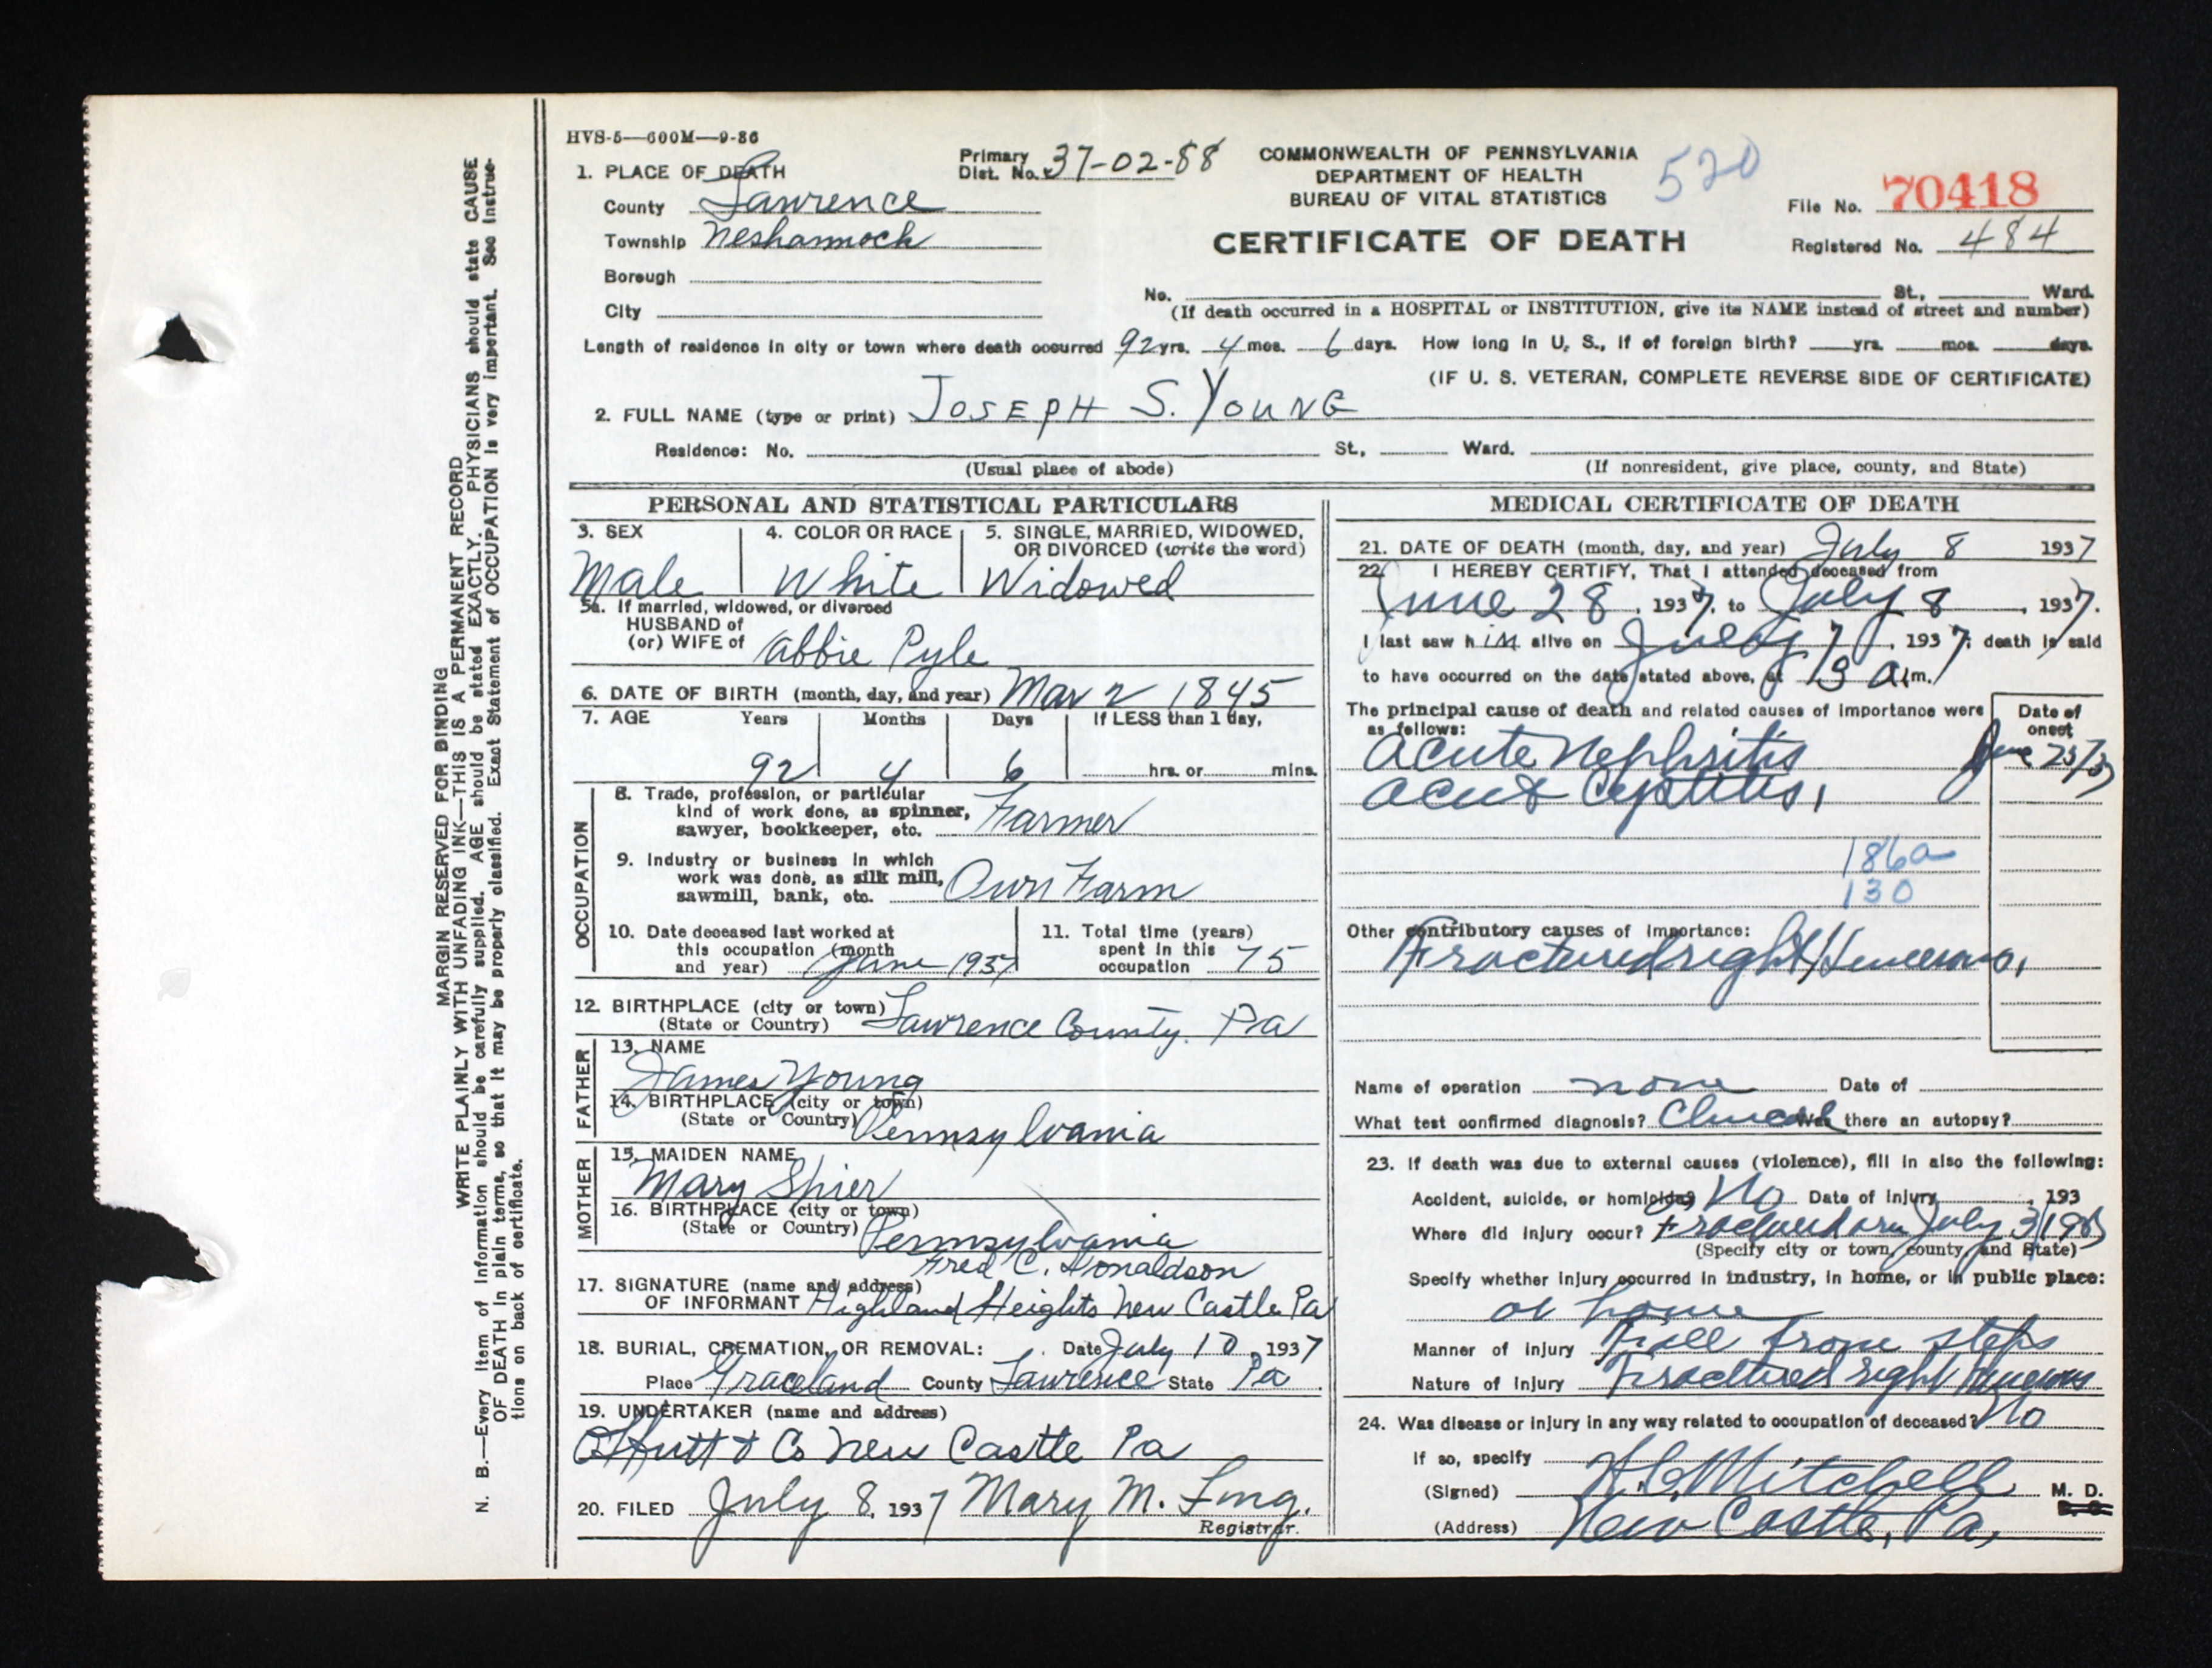 HVS-5—600M—9-36
1. PLACE OF DEATH
County Lawrence
Township Neshannock
Borough
City
Primary
Dist. No. 37-02-88
COMMONWEALTH OF PENNSYLVANIA
DEPARTMENT OF HEALTH
BUREAU OF VITAL STATISTICS
CERTIFICATE OF DEATH
520
File No. 70418
Registered No. 484
No. St., Ward.
(If death occurred in a HOSPITAL or INSTITUTION, give its NAME instead of street and number)
Length of residence in city or town where death occurred 92 yrs. 4 mos. 6 days. How long in U. S., if of foreign birth? yrs. mos. days.
(IF U. S. VETERAN, COMPLETE REVERSE SIDE OF CERTIFICATE)
2. FULL NAME (type or print) JOSEPH S. YOUNG
Residence: No. St., Ward.
(Usual place of abode) (If nonresident, give place, county, and State)
PERSONAL AND STATISTICAL PARTICULARS
3. SEX 4. COLOR OR RACE 5. SINGLE, MARRIED, WIDOWED,
OR DIVORCED (write the word)
Male White Widowed
5a. If married, widowed, or divorced
HUSBAND of
(or) WIFE of Abbie Pyle
6. DATE OF BIRTH (month, day, and year) Mar 2 1845
7. AGE Years Months Days If LESS than 1 day,
92 4 6 hrs. or mins.
OCCUPATION
8. Trade, profession, or particular
kind of work done, as spinner,
sawyer, bookkeeper, etc. Farmer
9. Industry or business in which
work was done, as silk mill,
sawmill, bank, etc. Own Farm
10. Date deceased last worked at
this occupation (month
and year) June 1937
11. Total time (years)
spent in this
occupation 75
12. BIRTHPLACE (city or town)
(State or Country) Lawrence County. Pa
FATHER
13. NAME
James Young
14. BIRTHPLACE (city or town)
(State or Country) Pennsylvania
MOTHER
15. MAIDEN NAME
Mary Shier
16. BIRTHPLACE (city or town)
(State or Country) Pennsylvania
Fred C. Donaldson
17. SIGNATURE (name and address)
OF INFORMANT Highland Heights New Castle Pa
18. BURIAL, CREMATION, OR REMOVAL: Date July 10, 1937
Place Graceland County Lawrence State Pa
19. UNDERTAKER (name and address)
Offutt & Co New Castle Pa
20. FILED July 8, 1937 Mary M.
Registrar.
MEDICAL CERTIFICATE OF DEATH
21. DATE OF DEATH (month, day, and year) July 8 1937
22. I HEREBY CERTIFY, That I attended deceased from
June 28, 1937, to July 8, 1937.
I last saw him alive on July 7, 1937; death is said
to have occurred on the date stated above, at 3 A.m.
The principal cause of death and related causes of importance were
as follows:
Date of
onset
Acute Nephritis June 25/37
Acute Cystitis,
186a
130
Other contributory causes of importance:
Fractured right Humerus,
Name of operation none Date of
What test confirmed diagnosis? Clinical Was there an autopsy?
23. If death was due to external causes (violence), fill in also the following:
Accident, suicide, or homicide? No Date of injury , 193
Where did injury occur? Fractured arm July 3
(Specify city or town, county, and State)
Specify whether injury occurred in industry, in home, or in public place:
at home
Manner of injury Fall from steps
Nature of injury Fractured right Humerus
24. Was disease or injury in any way related to occupation of deceased? No
If so, specify
(Signed) Mitchell M. D.
D. O.
(Address) New Castle, Pa,
MARGIN RESERVED FOR BINDING
WRITE PLAINLY WITH UNFADING INK—THIS IS A PERMANENT RECORD
N. B.—Every item of information should be carefully supplied. AGE should be stated EXACTLY. PHYSICIANS should state CAUSE
OF DEATH in plain terms, so that it may be properly classified. Exact Statement of OCCUPATION is very important. See instruc-
tions on back of certificate.